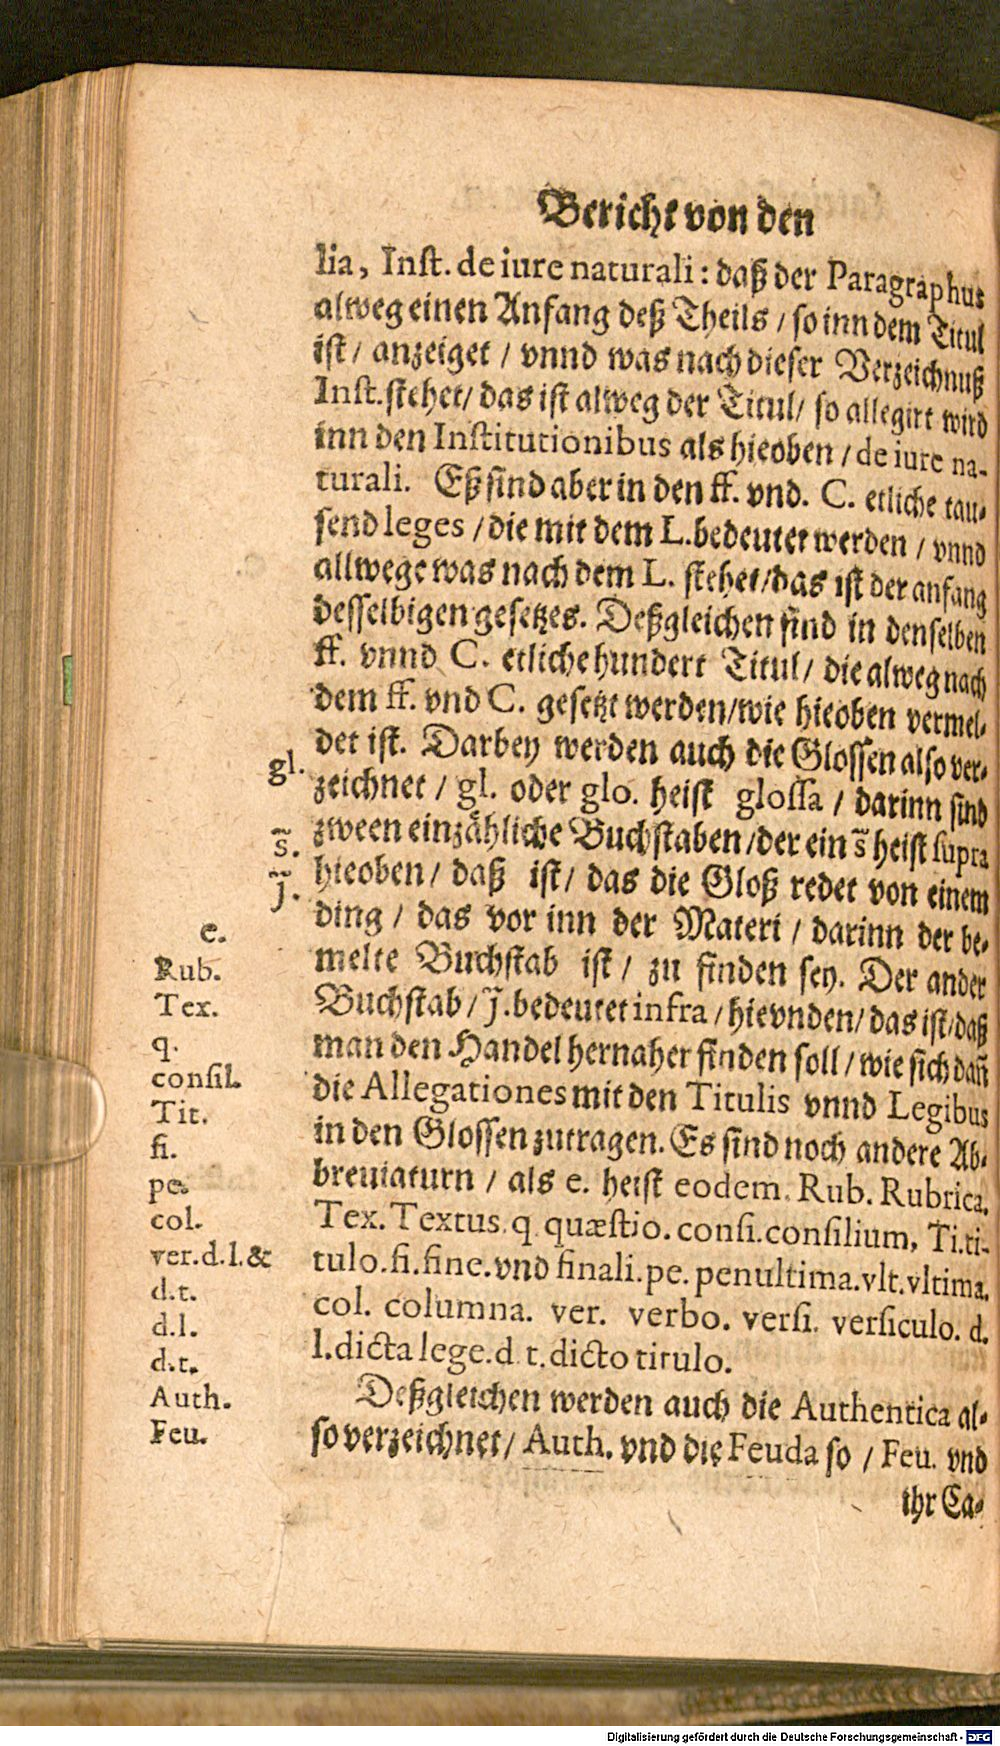 Bericht von den
lia, Inst. de iure naturali: daß der Paragraphus
alweg einen Anfang deß Theils / so inn dem Titul
ist / anzeiget / vnnd was nach dieser Verzeichnuß
Inst. stehet / das ist alweg der Titul / so allegirt wird
inn den Institutionibus als hieoben / de iure na-
turali. Eß sind aber in den ff. vnd. C. etliche tau-
send leges / die mit dem L. bedeutet werden / vnnd
allwege was nach dem L. stehet / das ist der anfang
desselbigen gesetzes. Deßgleichen sind in denselben
ff. vnnd C. etliche hundert Titul / die alweg nach
dem ff. vnd C. gesetzt werden / wie hieoben vermel-
det ist. Darbey werden auch die Glossen also ver-
gl.
zeichnet / gl. oder glo. heist glossa / darinn sind
zween einzähliche Buchstaben / der ein s̃ heist supra
s̃.
hieoben / daß ist / das die Gloß redet von einem
j̃.
ding / das vor inn der Materi / darinn der be-
e.
melte Buchstab ist / zu finden sey. Der ander
Rub.
Buchstab / j̃. bedeutet infra / hievnden / das ist / daß
Tex.
man den Handel hernaher finden soll / wie sich dañ
q.
die Allegationes mit den Titulis vnnd Legibus
consil.
in den Glossen zutragen. Es sind noch andere Ab-
Tit.
breuiaturn / als e. heist eodem. Rub. Rubrica.
fi.
Tex. Textus. q. quæstio. consi. consilium, Ti. ti-
pe.
tulo. fi. fine. vnd finali. pe. penultima. vlt. vltima.
col.
col. columna. ver. verbo. versi. versiculo. d.
ver. d. l. &
l. dicta lege. d. t. dicto titulo.
d. t.
d. l.
d. t.
Deßgleichen werden auch die Authentica al-
Auth.
so verzeichnet / Auth. vnd die Feuda so / Feu. vnd
Feu.
ihr Ca-
Digitalisierung gefördert durch die Deutsche Forschungsgemeinschaft - DFG